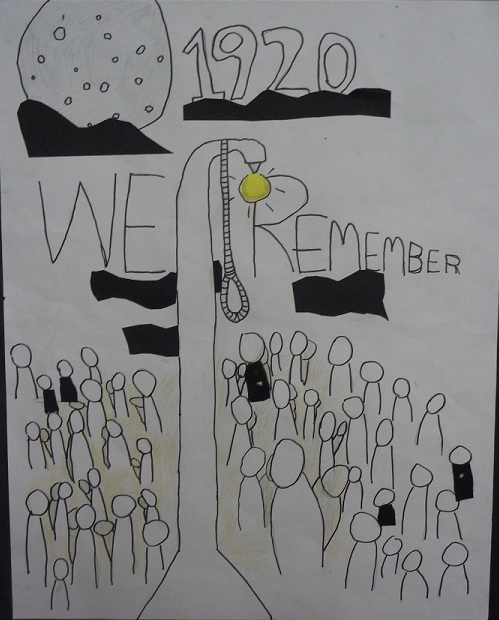 1920
WE REMEMBER